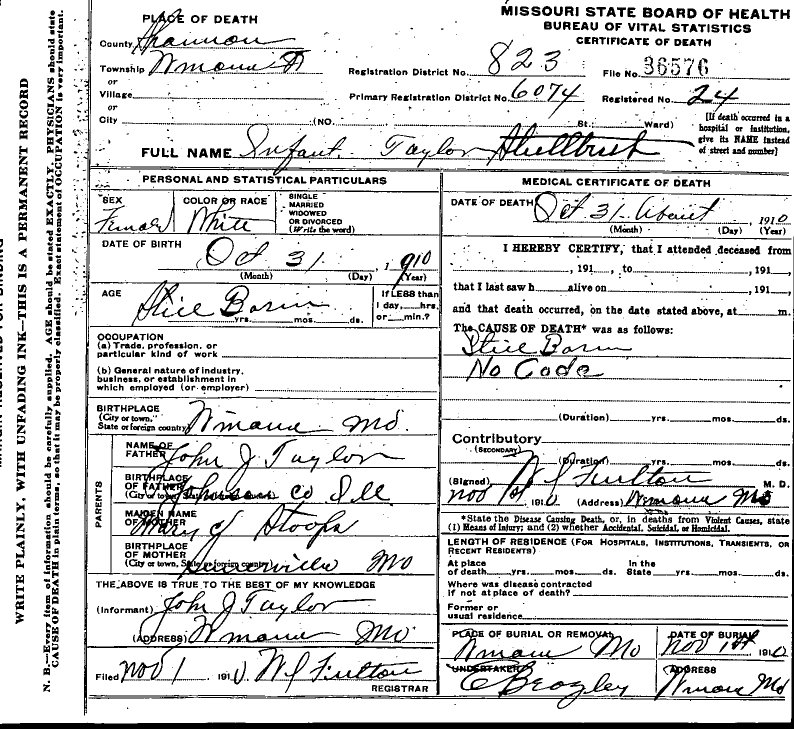 MISSOURI STATE BOARD OF HEALTH
BUREAU OF VITAL STATISTICS
CERTIFICATE OF DEATH
PLACE OF DEATH
County Shannon
Township Winona
or
Village
or
City (NO. St. Ward)
Registration District No. 823
File No. 36576
Primary Registration District No. 6074
Registered No. 24
[If death occurred in a hospital or institution, give its NAME instead of street and number]
FULL NAME Infant Taylor
PERSONAL AND STATISTICAL PARTICULARS
SEX Female
COLOR OR RACE White
SINGLE
MARRIED
WIDOWED
OR DIVORCED
(Write the word)
DATE OF BIRTH Oct 31, 1910
(Month) (Day) (Year)
AGE Stice Born
yrs. mos. ds.
If LESS than
1 day, hrs.
or min.?
OCCUPATION
(a) Trade, profession, or
particular kind of work
(b) General nature of industry,
business, or establishment in
which employed (or employer)
BIRTHPLACE
(City or town,
State or foreign country) Winona Mo.
PARENTS
NAME OF
FATHER John J Taylor
BIRTHPLACE
OF FATHER
(City or town, State or foreign country) Johnson co Ill
MAIDEN NAME
OF MOTHER Mary J Stoops
BIRTHPLACE
OF MOTHER
(City or town, State or foreign country) Mo
THE ABOVE IS TRUE TO THE BEST OF MY KNOWLEDGE
(Informant) John J Taylor
(ADDRESS) Winona Mo
Filed Nov 1 1910 W J Fulton
REGISTRAR
MEDICAL CERTIFICATE OF DEATH
DATE OF DEATH Oct 31 - About 1910
(Month) (Day) (Year)
I HEREBY CERTIFY, that I attended deceased from
, 191 , to , 191 ,
that I last saw h alive on , 191 ,
and that death occurred, on the date stated above, at m.
The CAUSE OF DEATH* was as follows:
Stice Born
No Code
(Duration) yrs. mos. ds.
Contributory
(SECONDARY)
(Duration) yrs. mos. ds.
(Signed) W J Fulton M. D.
Nov 1st 1910 (Address) Winona Mo
*State the Disease Causing Death, or, in deaths from Violent Causes, state
(1) Means of Injury; and (2) whether Accidental, Suicidal, or Homicidal.
LENGTH OF RESIDENCE (FOR HOSPITALS, INSTITUTIONS, TRANSIENTS, OR
RECENT RESIDENTS)
At place
of death yrs. mos. ds.
In the
State yrs. mos. ds.
Where was disease contracted
if not at place of death?
Former or
usual residence
PLACE OF BURIAL OR REMOVAL Winona Mo
DATE OF BURIAL Nov 1st 1910
UNDERTAKER
ADDRESS Winona Mo
WRITE PLAINLY, WITH UNFADING INK—THIS IS A PERMANENT RECORD
N. B.—Every item of information should be carefully supplied. AGE should be stated EXACTLY. PHYSICIANS should state
CAUSE OF DEATH in plain terms, so that it may be properly classified. Exact statement of OCCUPATION is very important.